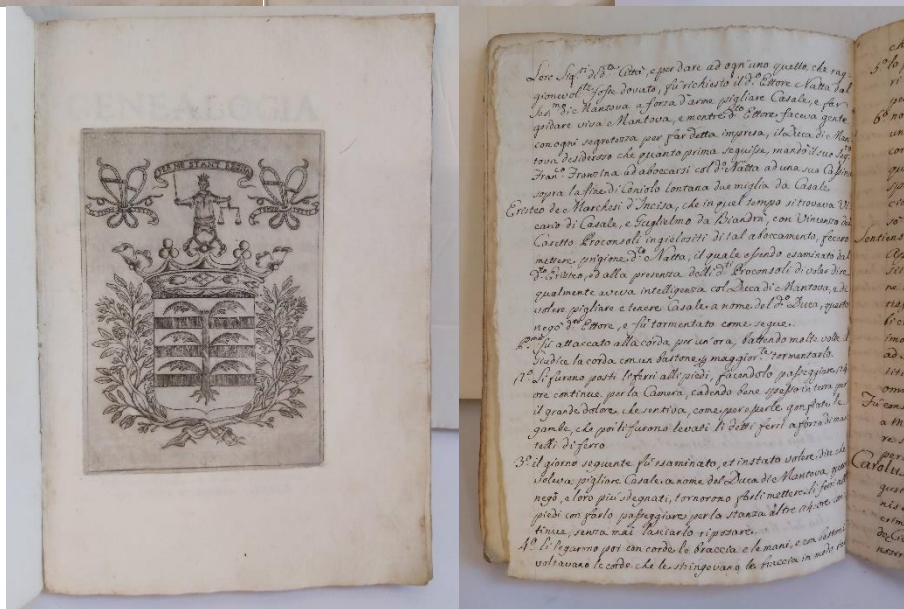 ENEALOGIA
PER ME STANT REGNA
Loro Sig.ri d. d.ta Città, e per dare ad ogn'uno quello, che rag
gionevol.te fosse dovuto, fù richiesto il d.o Ettore Natta dal
Ser.mo di Mantova a forza d'arme pigliare Casale, e far
gridare viva Mantova, e mentre d.to Ettore faceva gente
con ogni segretezza per far detta impresa, il Duca di Man
tova desideroso che quanto prima seguisse, mandò il suo Seg.rio
Fran.o Franzina ad aboccarsi col d.o Natta ad una sua Cassina
sopra la fine di Coniolo lontana due miglia da Casale
Eristeo de Marchesi d'Incisa, che in quel tempo si trovava Vi
cario di Casale, e Guglielmo da Biandrà, con Vincenzo dal
Caretto Proconsoli ingielositi di tal aboccamento, fecero
mettere prigione d.to Natta, il quale essendo esaminato dal
d.o Eristeo, ed alla presenza delli d.ti Proconsoli di voler dire
qualmente aveva intelligenza col Duca di Mantova, e di
volere pigliare e tenere Casale a nome del d.o Duca, questo
negò d.to Ettore, e fù tormentato come segue.
P.mo fù attaccato alla corda per un'ora, battendo molte volte il
Giudice la corda con un bastone per maggior.te tormentarlo.
2.o Li furono posti li ferri alli piedi, facendolo passeggiare 24
ore continue per la Camera, cadendo bene spesso in terra per
il grande dolore, che sentiva, come per esserle gonfiate le
gambe, che poi li furono levati li detti ferri a forza di mar
telli di ferro
3.o il giorno seguente fù esaminato, et instato volere dire che
voleva pigliare Casale a nome del Duca di Mantova, questo
negò, e loro più sdegnati, tornorono farli mettere li ferri alli
piedi con farlo passeggiare per la stanza altre 24 ore con
tinue, senza mai lasciarlo riposare.
4.o li legarono poi con corde le braccia e le mani, e con bastoni
voltavano le corde che le stringevano le braccia in modo
5.o
6.o
Sentiens
Fù con
Carolus